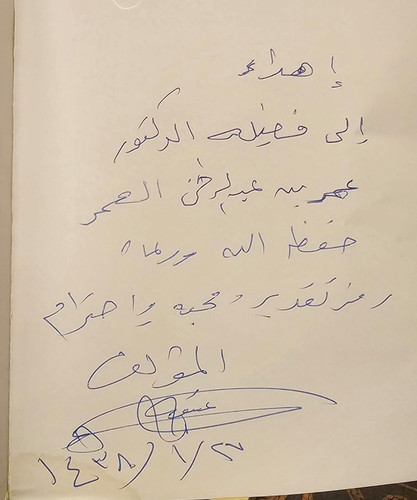 إهداء
إلى فضيلة الدكتور
عمر بن عبدالرحمن العمر
حفظه الله ورعاه
رمز تقدير ومحبه واحترام
المؤلف
١٤٣٨/١/٢٧